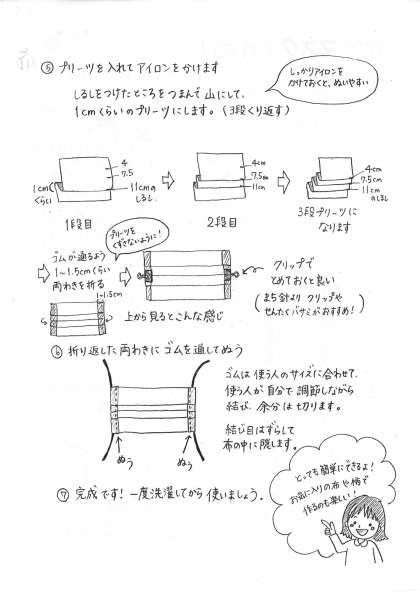 ⑤ プリーツを入れてアイロンをかけます
しっかりアイロンを
かけておくと、ぬいやすい
しるしをつけたところをつまんで 山にして、
1cmくらいのプリーツにします。(3段くり返す)
4
7.5
1cm
くらい
11cmの
しるし
1段目
4cm
7.5cm
11cm
2段目
4cm
7.5cm
11cm
のしるし
3段プリーツに
なります
プリーツを
くずさないように!
ゴムが通るよう
1~1.5cmくらい
両わきを折る
1~1.5cm
上から見るとこんな感じ
クリップで
とめておくと良い
(まち針より クリップや
せんたくバサミがおすすめ!)
⑥ 折り返した両わきにゴムを通してぬう
ゴムは使う人のサイズに合わせて、
使う人が自分で調節しながら
結び、余分は切ります。
結び目はずらして
布の中に隠します。
ぬう
ぬう
⑦ 完成です!一度洗濯してから使いましょう。
とっても簡単にできるよ!
お気に入りの布や柄で
作るのも楽しい!